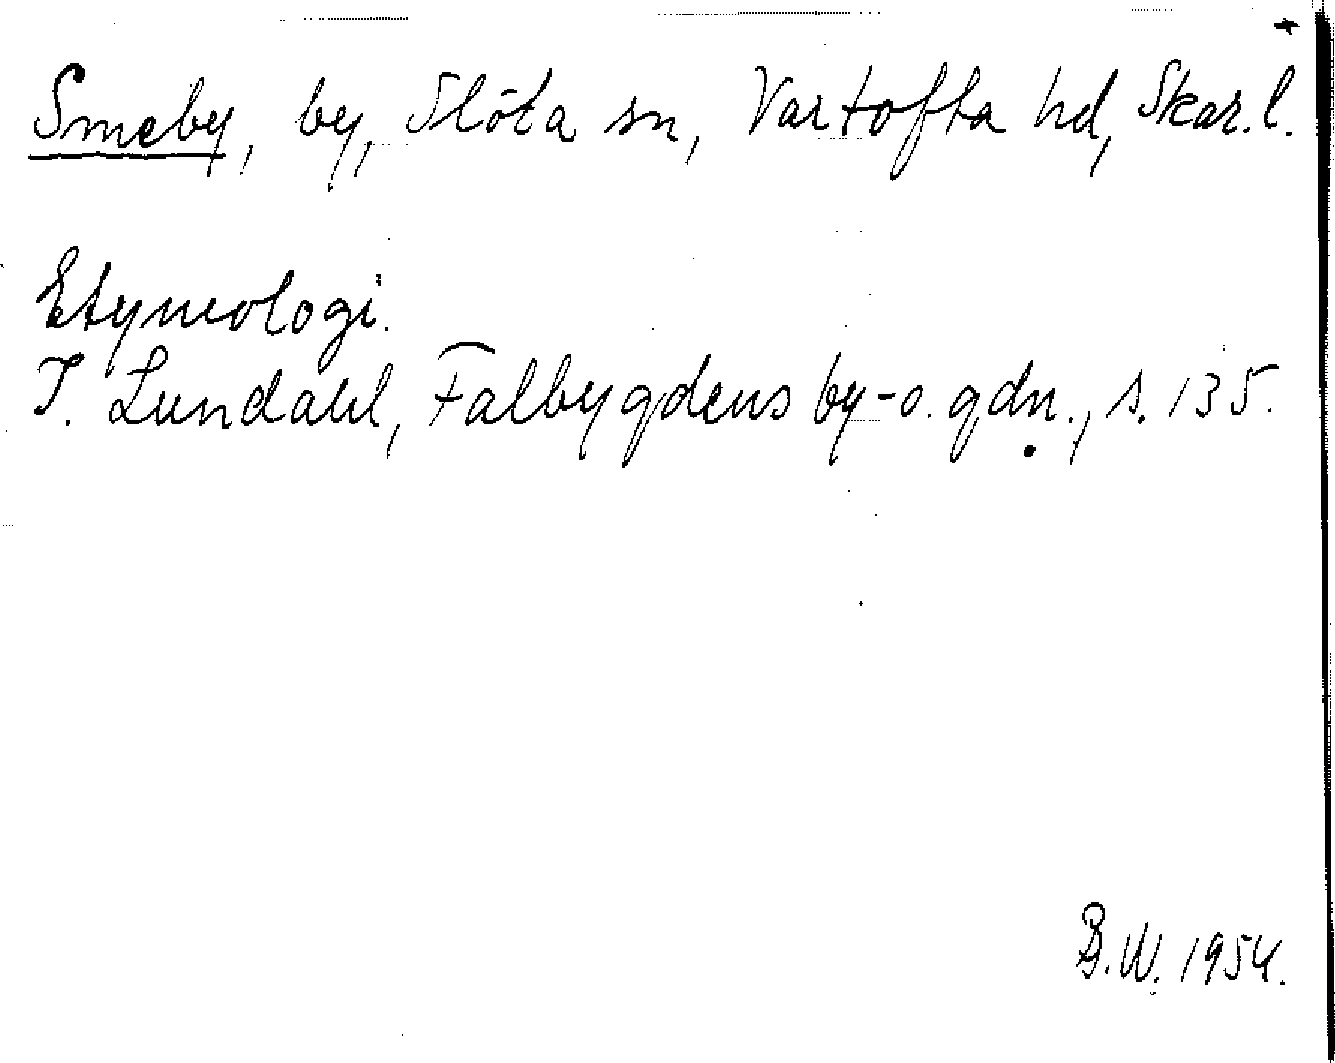 Smeby, by, Slöta sn, Vartofta hd, Skar. l.
Etymologi.
I. Lundahl, Falbygdens by- o. gdn., s. 135.
B.W. 1954.